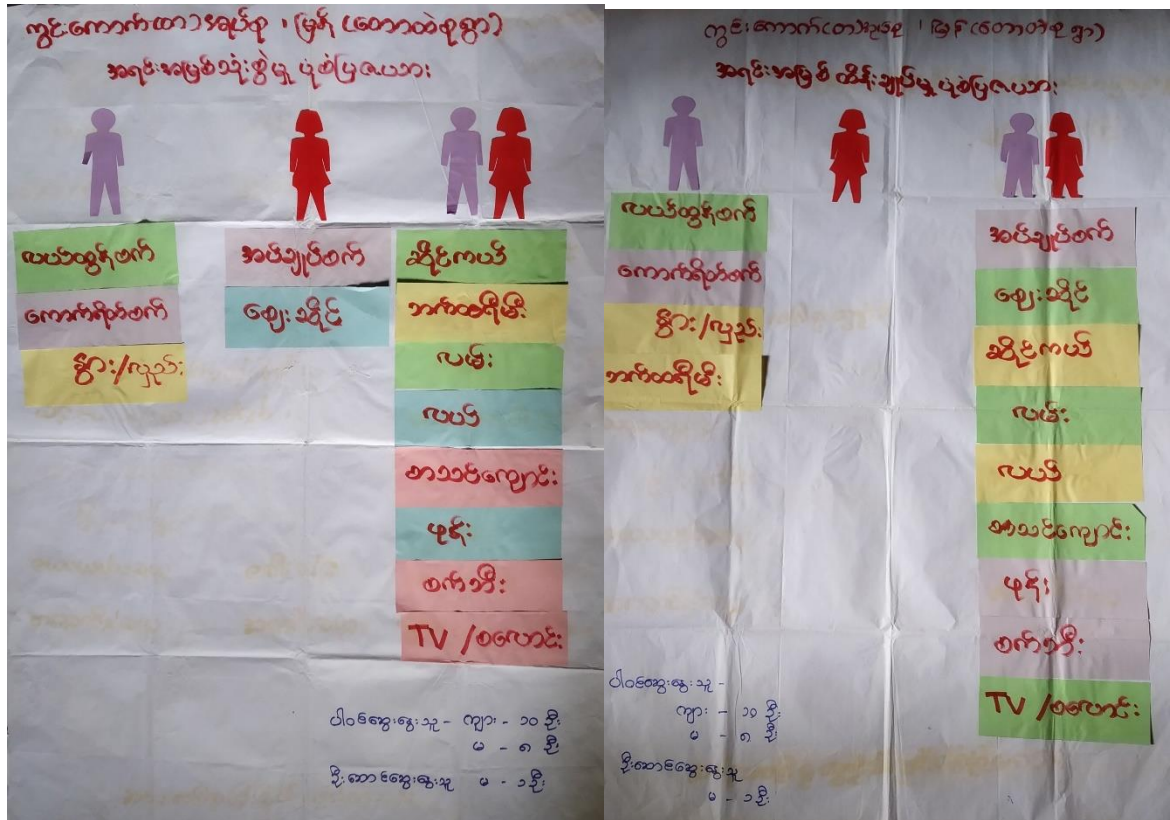 ကွင်းကောက်(ထာ)အုပ်စု ၊ မြန် (တောတဲစုရွာ)
အရင်းအမြစ်သုံးစွဲမှု ပုံစံပြဇယား
လယ်ထွန်စက်
ကောက်ရိတ်စက်
နွား/လှည်း
အပ်ချုပ်စက်
ဈေးဆိုင်
ဆိုင်ကယ်
ဘက်ထရီမီး
လမ်း
လယ်
စာသင်ကျောင်း
ဖုန်း
စက်ဘီး
TV /စလောင်း
ပါဝင်ဆွေးနွေးသူ - ကျား - ၁၀ ဦး
မ - ၈ ဦး
ဦးဆောင်ဆွေးနွေးသူ မ - ၁ဦး
ကွင်းကောက်(တာ)အုပ်စု ၊ မြန် (တောတဲစုရွာ)
အရင်းအမြစ် ထိန်းချုပ်မှု ပုံစံပြဇယား
လယ်ထွန်စက်
ကောက်ရိတ်စက်
နွား/လှည်း
ဘက်ထရီမီး
အပ်ချုပ်စက်
ဈေးဆိုင်
ဆိုင်ကယ်
လမ်း
လယ်
စာသင်ကျောင်း
ဖုန်း
စက်ဘီး
TV /စလောင်း
ပါဝင်ဆွေးနွေးသူ -
ကျား - ၁၀ ဦး
မ - ၈ ဦး
ဦးဆောင်ဆွေးနွေးသူ
မ - ၁ဦး